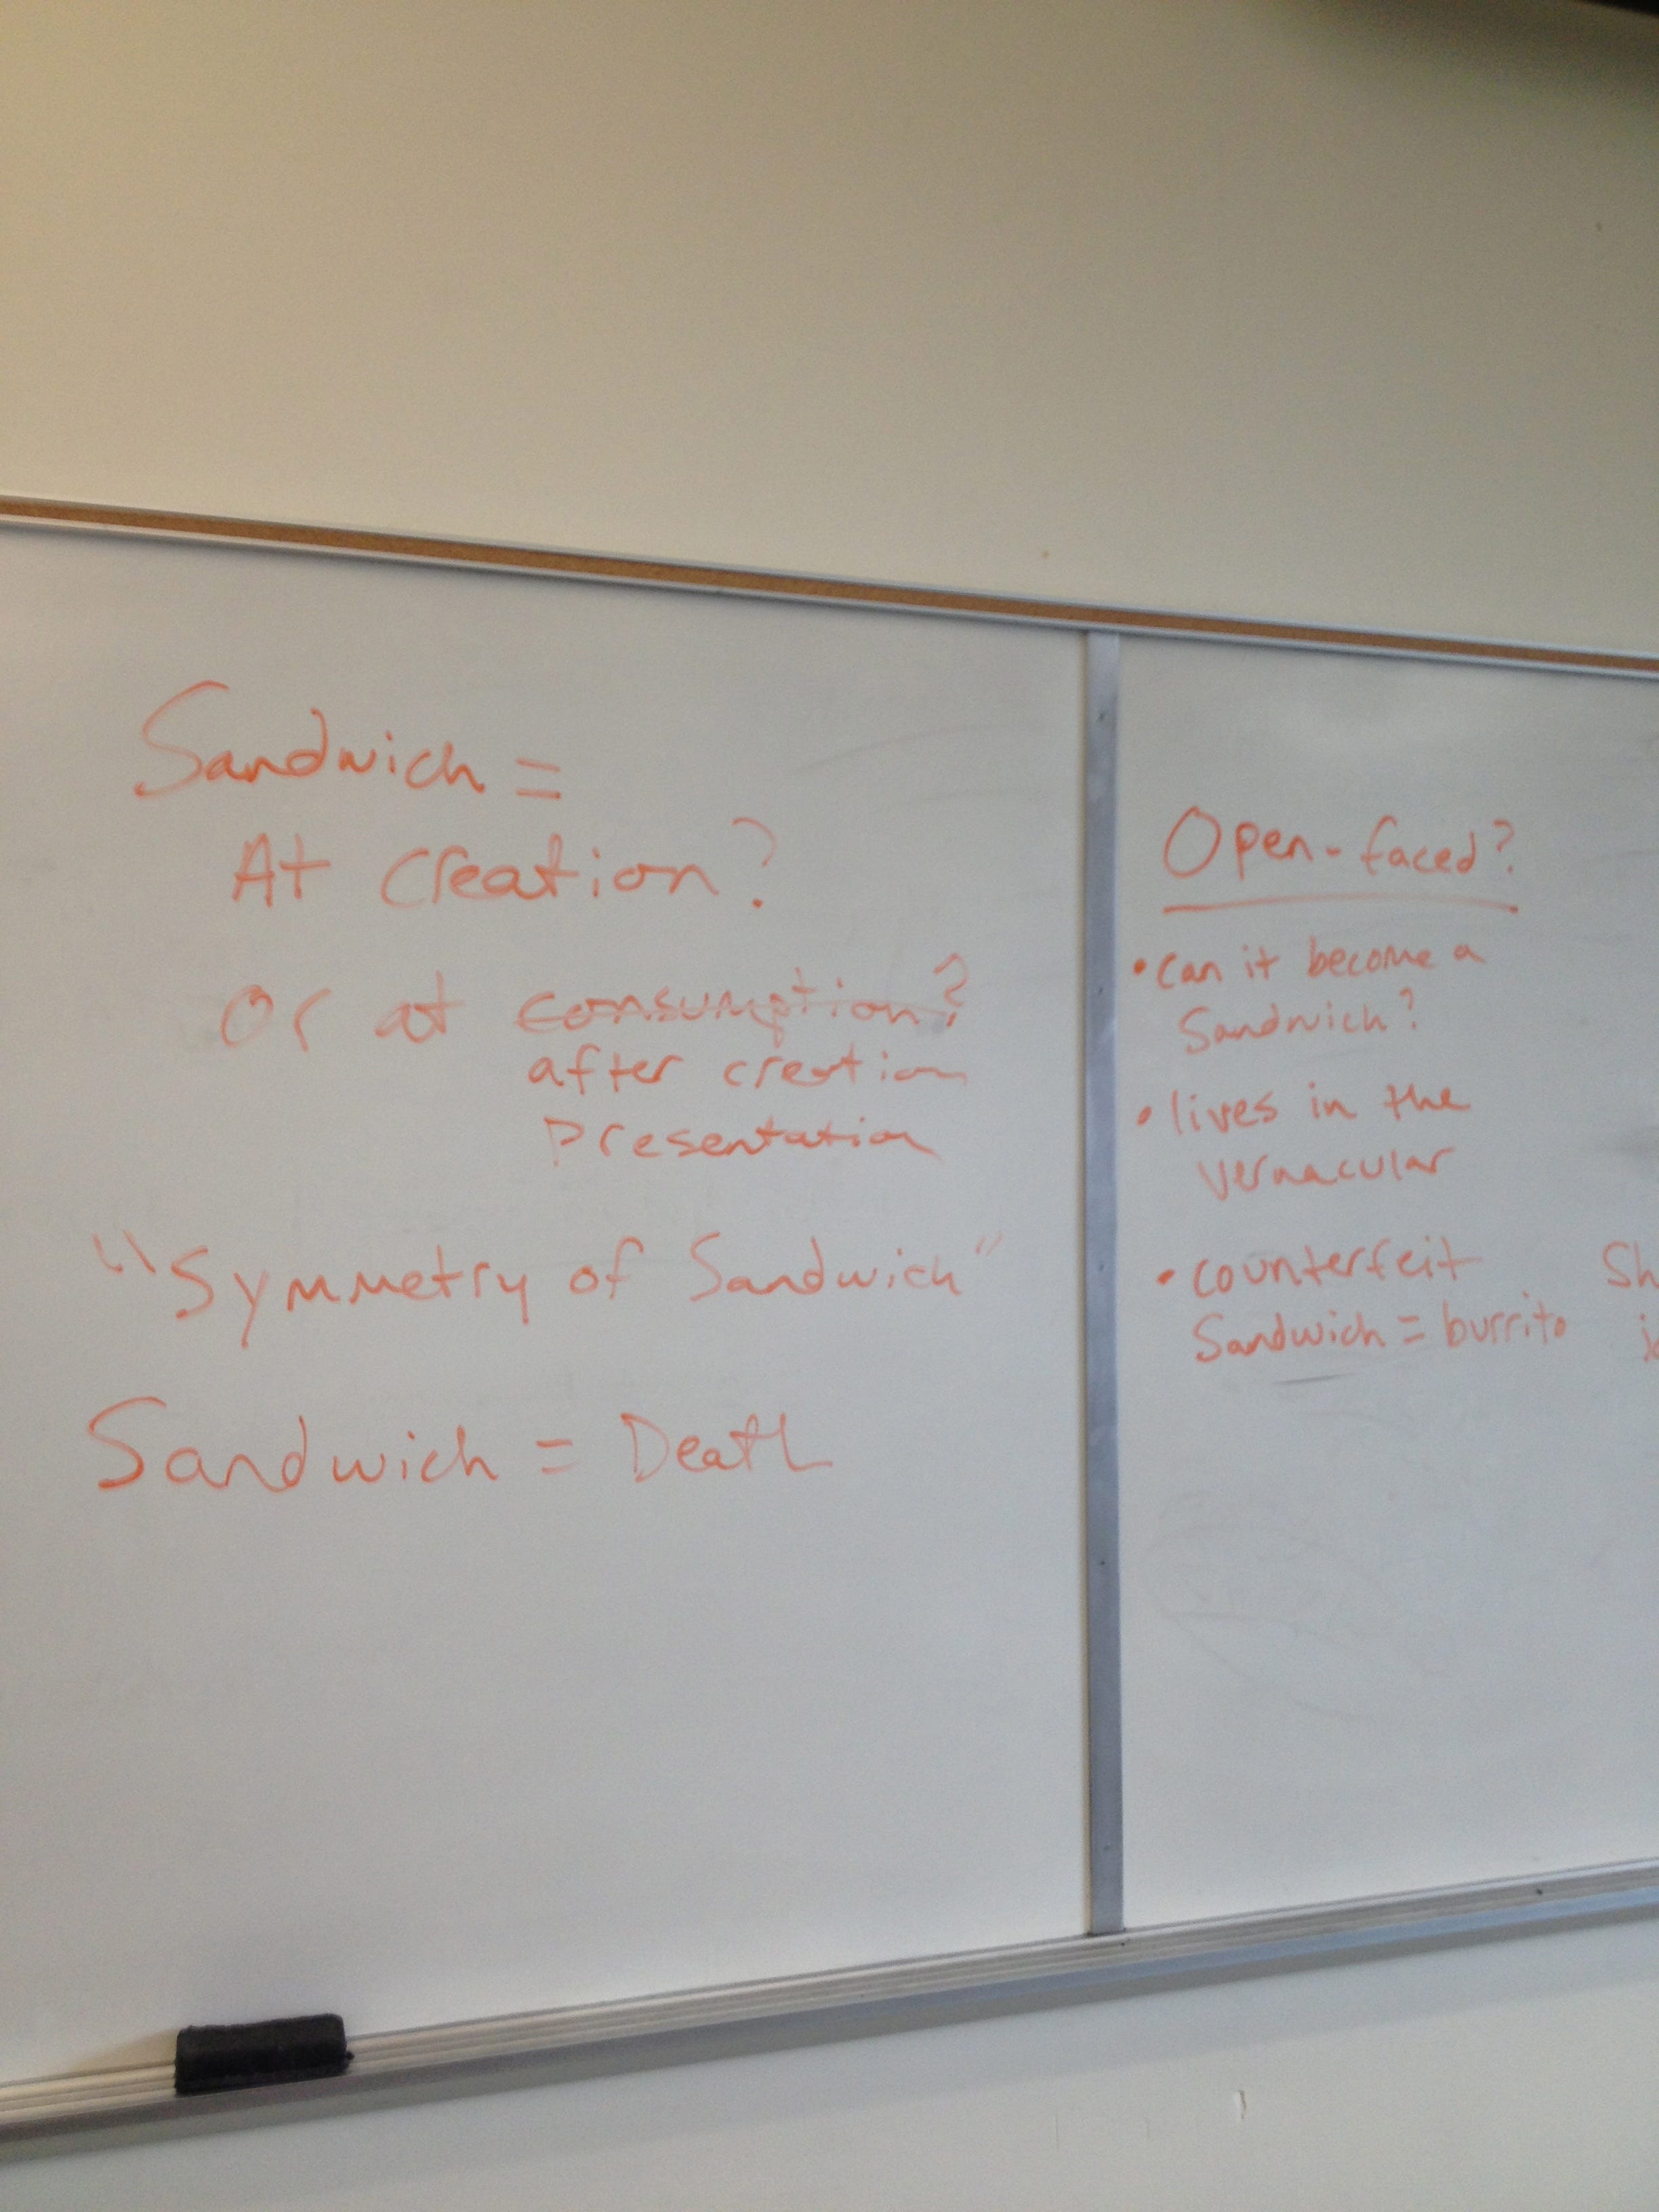 Sandwich =
At Creation?
Or at consumption?
after creation
Presentation
"Symmetry of Sandwich"
Sandwich = Death
Open-faced?
• can it become a
Sandwich?
• lives in the
vernacular
• counterfeit
Sandwich = burrito